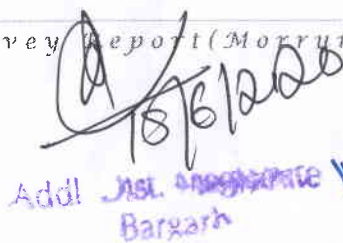 vey Report (Morrum
18/6/2020
Addl Dist. Magistrate
Bargarh